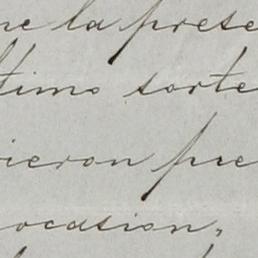 ne la prese
ltimo sorte
ieron pre
ocasion,